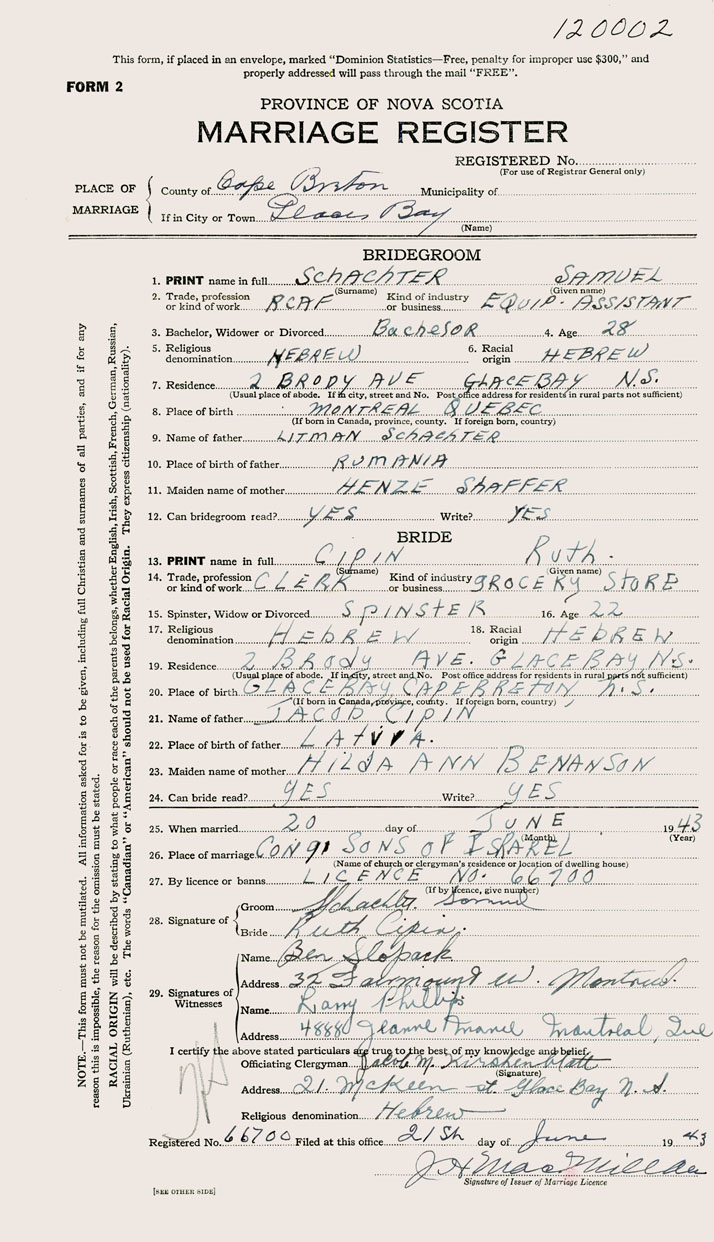 120002
This form, if placed in an envelope, marked "Dominion Statistics—Free, penalty for improper use $300," and
properly addressed will pass through the mail "FREE".
FORM 2
PROVINCE OF NOVA SCOTIA
MARRIAGE REGISTER
REGISTERED No.
(For use of Registrar General only)
PLACE OF MARRIAGE
County of Cape Breton Municipality of
If in City or Town Glace Bay
(Name)
BRIDEGROOM
1. PRINT name in full SCHACHTER SAMUEL
(Surname) (Given name)
2. Trade, profession or kind of work RCAF Kind of industry or business EQUIP. ASSISTANT
3. Bachelor, Widower or Divorced Bachelor 4. Age 28
5. Religious denomination HEBREW 6. Racial origin HEBREW
7. Residence 2 BRODY AVE GLACE BAY N.S.
(Usual place of abode. If in city, street and No. Post office address for residents in rural parts not sufficient)
8. Place of birth MONTREAL QUEBEC
(If born in Canada, province, county. If foreign born, country)
9. Name of father LITMAN SCHACHTER
10. Place of birth of father RUMANIA
11. Maiden name of mother HENZE SHAFFER
12. Can bridegroom read? YES Write? YES
BRIDE
13. PRINT name in full CIPIN Ruth.
(Surname) (Given name)
14. Trade, profession or kind of work CLERK Kind of industry or business GROCERY STORE
15. Spinster, Widow or Divorced SPINSTER 16. Age 22
17. Religious denomination HEBREW 18. Racial origin HEBREW
19. Residence 2 Brody AVE. GLACE BAY N.S.
(Usual place of abode. If in city, street and No. Post office address for residents in rural parts not sufficient)
20. Place of birth GLACE BAY, CAPE BRETON, N.S.
(If born in Canada, province, county. If foreign born, country)
21. Name of father JACOB CIPIN
22. Place of birth of father LATVIA.
23. Maiden name of mother HILDA ANN BENANSON
24. Can bride read? YES Write? YES
25. When married 20 day of JUNE 1943
(Month) (Year)
26. Place of marriage CONG SONS OF ISRAEL
(Name of church or clergyman's residence or location of dwelling house)
27. By licence or banns LICENCE NO. 66700
(If by licence, give number)
28. Signature of
Groom Schachter Samuel
Bride Ruth Cipin.
29. Signatures of Witnesses
Name Ben Slopack
Address 32 Fairmount W. Montreal.
Name Larry Phillips
Address 4888 Jeanne Mance Montreal, Que
I certify the above stated particulars are true to the best of my knowledge and belief.
Officiating Clergyman Jacob M. Kirshenblatt
(Signature)
Address 21. McKeen st. Glace Bay N.S.
Religious denomination Hebrew
Registered No. 66700 Filed at this office 21st day of June 1943
J H MacMillan
Signature of Issuer of Marriage Licence
[SEE OTHER SIDE]
NOTE.—This form must not be mutilated. All information asked for is to be given, including full Christian and surnames of all parties, and if for any
reason this is impossible, the reason for the omission must be stated.
RACIAL ORIGIN will be described by stating to what people or race each of the parents belongs, whether English, Irish, Scottish, French, German, Russian,
Ukrainian (Ruthenian), etc. The words "Canadian" or "American" should not be used for Racial Origin. They express citizenship (nationality).